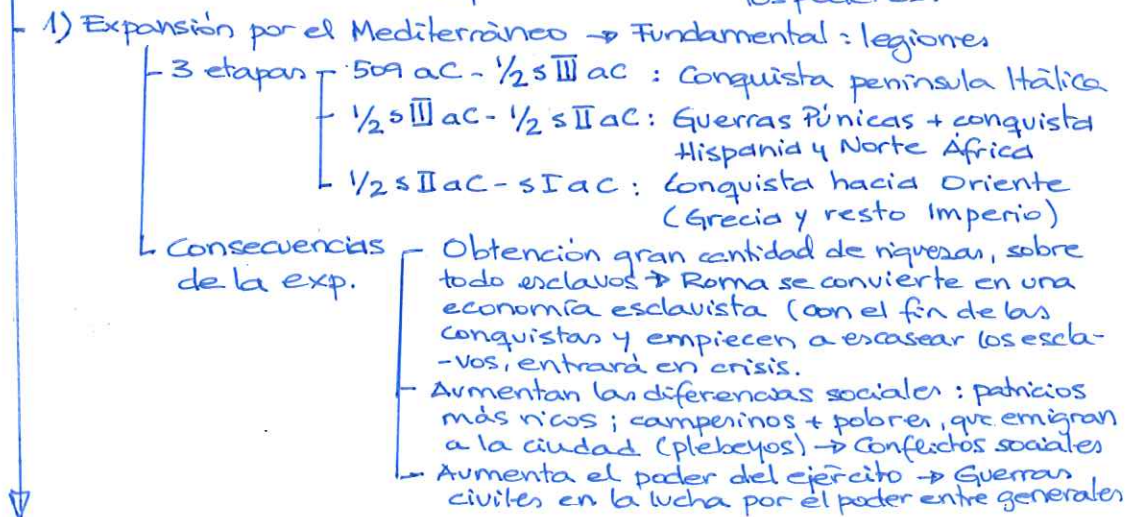 1) Expansión por el Mediterráneo → Fundamental: legiones
3 etapas
509 aC - 1/2 s III aC : Conquista península Itálica
1/2 s III aC - 1/2 s II aC : Guerras Púnicas + conquista
Hispania y Norte África
1/2 s II aC - s I aC : Conquista hacia Oriente
(Grecia y resto Imperio)
Consecuencias
de la exp.
Obtención gran cantidad de riquezas, sobre
todo esclavos → Roma se convierte en una
economía esclavista (con el fin de las
conquistas y empiecen a escasear los escla-
-vos, entrará en crisis.
Aumentan las diferencias sociales : patricios
más ricos ; campesinos + pobres, que emigran
a la ciudad (plebeyos) → Conflictos sociales
Aumenta el poder del ejército → Guerras
civiles en la lucha por el poder entre generales